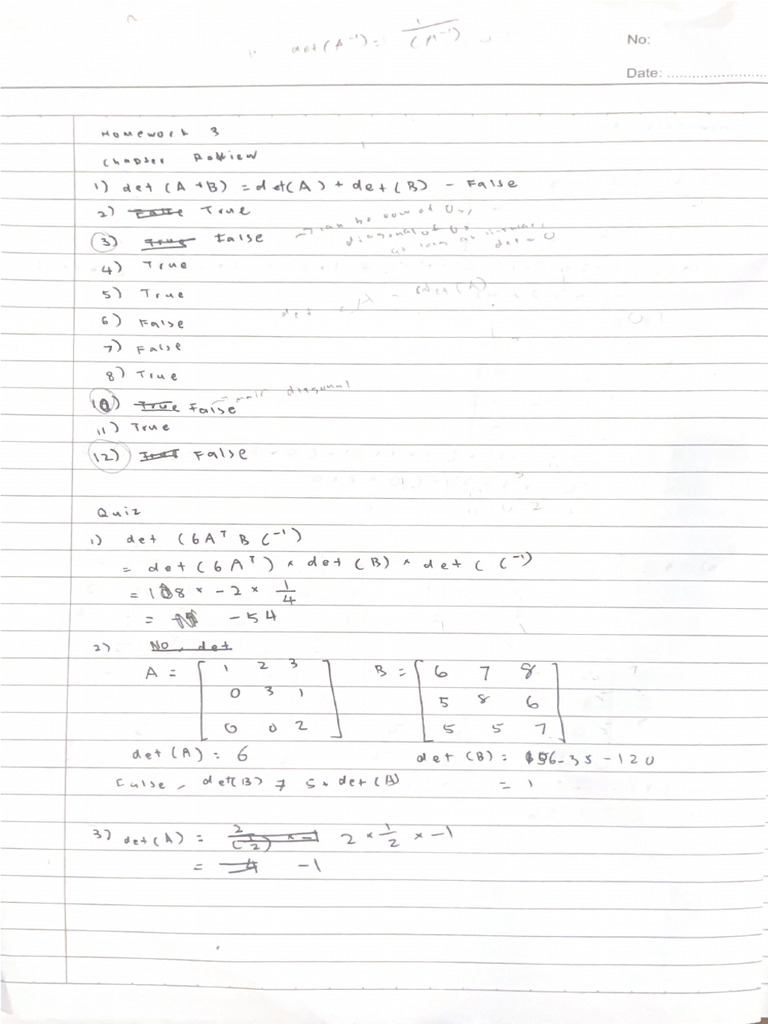 det(A⁻¹) = 1/(A⁻¹)
No:
Date: ........................
Homework 3
Chapter Review
1) det (A+B) = det(A) + det(B) - False
2) True
3) False → can be row of 0s,
diagonal of 0s
as long as
det = 0
4) True
5) True
6) False
det
7) False
8) True
10) True False - main diagonal
11) True
12) False
Quiz
1) det (6Aᵀ B C⁻¹)
= det (6Aᵀ) × det (B) × det (C⁻¹)
= 108 × -2 × 1/4
= -54
2) No, det
A = [1 2 3 B = [6 7 8
0 3 1 5 8 6
0 0 2] 5 5 7]
det (A) = 6 det (B) = 156-35-120
False, det(B) ≠ 5 × det (A) = 1
3) det (A) = 2 × 1/2 × -1
= -4 -1